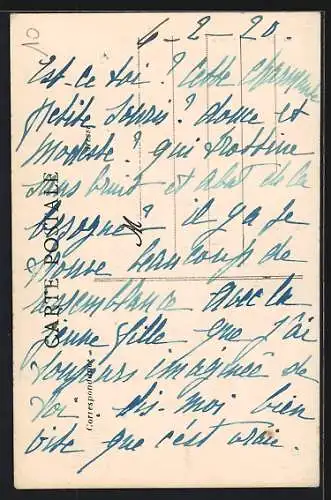 10
6-2-20.
Est-ce toi? Cette charmante
petite souris? douce et
modeste? qui trottine
sans bruit et abat de la
besogne? il y a je
trouve beaucoup de
ressemblance avec la
jeune fille que j'ai
toujours imaginée de
toi dis-moi bien
vite que c'est vrai.
CARTE POSTALE
Correspondance
Adresse
M